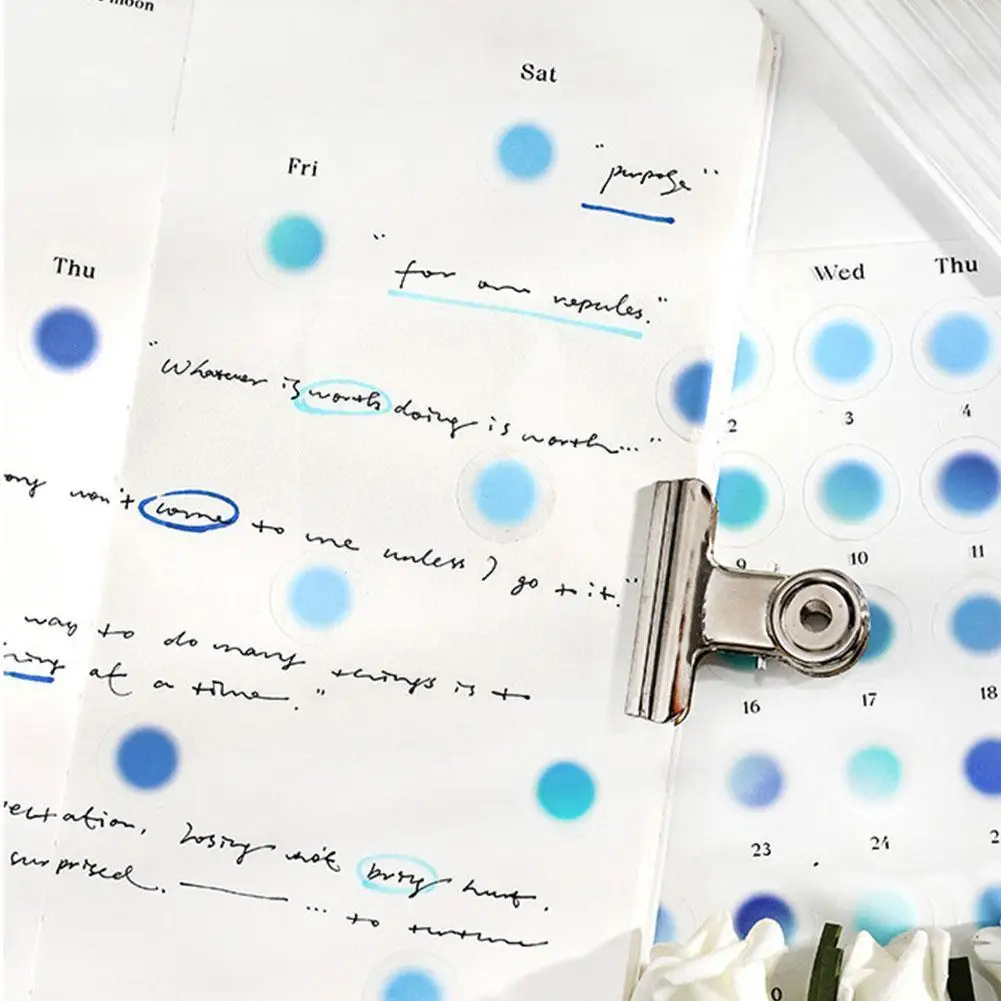 moon
Sat
Fri
Thu
"purpose"
"for
"Whatever is worth doing is worth..."
won't come to me unless I go to it."
way to do many things is to
at a time."
losing not
surprised. ... to
Wed Thu
2 3 4
9 10 11
16 17 18
23 24 2